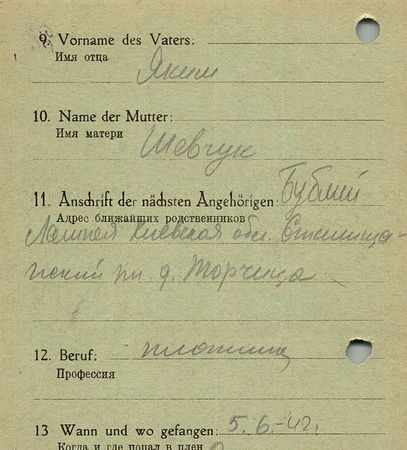 9. Vorname des Vaters:
Имя отца
Яким
10. Name der Mutter:
Имя матери
Шевчук
11. Anschrift der nächsten Angehörigen:
Адрес ближайших родственников
Киевская обл.
д. Торчица
12. Beruf: плотник
Профессия
13 Wann und wo gefangen: 5.6.-42г.
Когда и где попал в плен